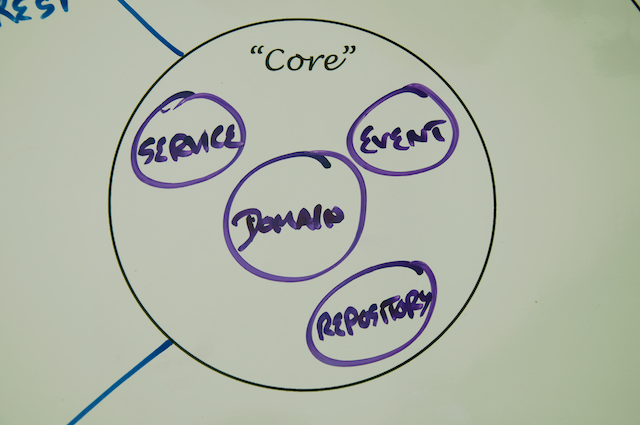 REST
“Core”
SERVICE
EVENT
DOMAIN
REPOSITORY